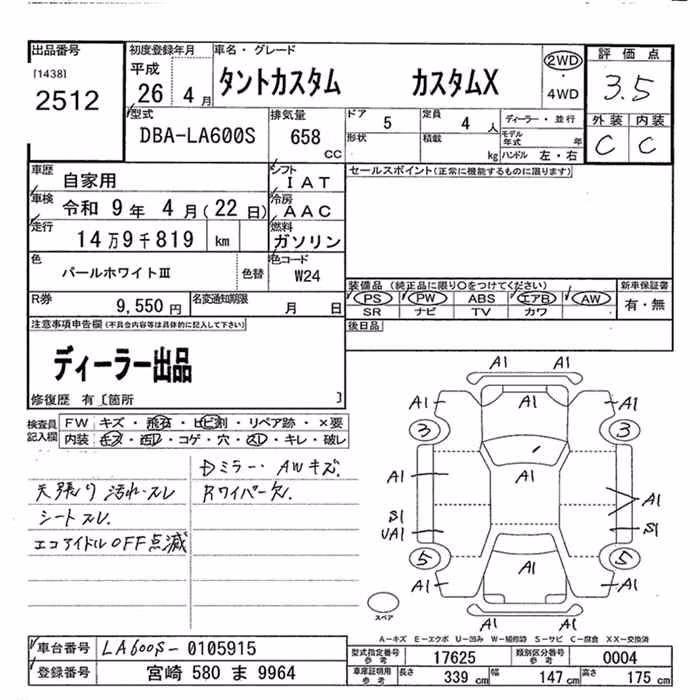 出品番号
[1438]
2512
初度登録年月
平成
26 4月
車名・グレード
タントカスタム カスタムX
2WD
・
4WD
評価点
3.5
外装 内装
C C
型式
DBA-LA600S
排気量
658
cc
ドア 5
形状
定員 4 人
積載 kg
ディーラー・並行
モデル年式 年
ハンドル 左・右
車歴 自家用
シフト IAT
セールスポイント(正常に機能するものに限ります)
車検 令和 9年 4月(22日)
冷房 AAC
走行 14万9千819 km
燃料 ガソリン
色 パールホワイトⅢ 色替
色コード W24
装備品 (純正品に限り○をつけてください)
新車保証書
PS PW ABS エアB AW
有・無
SR ナビ TV カワ
R券 9,550円
名変通知期限 月 日
後日品
注意事項申告欄(不具合内容等は具体的に記入して下さい)
ディーラー出品
修復歴 有 [箇所 ]
検査員記入欄
FW キズ・飛石・ヒビ割・リペア跡・×要
内装 キズ・汚レ・コゲ・穴・スレ・キレ・破レ
Dミラー・AWキズ.
天張り汚れ・スレ Rワイパー欠.
シートスレ.
エコアイドルOFF点滅
A1 A1
A1 A1 A1
3 3
A1 A1 A1
S1 S1
UA1
5 5
A1 A1 A1
A1 A1
スペア
A-キズ E-エクボ U-凹み W-補修跡 S-サビ C-腐食 XX-交換済
車台番号 LA600S-0105915
型式指定番号参考 17625
類別区分番号参考 0004
登録番号 宮崎 580 ま 9964
車庫証明用参考 長さ 339 cm 幅 147 cm 高さ 175 cm